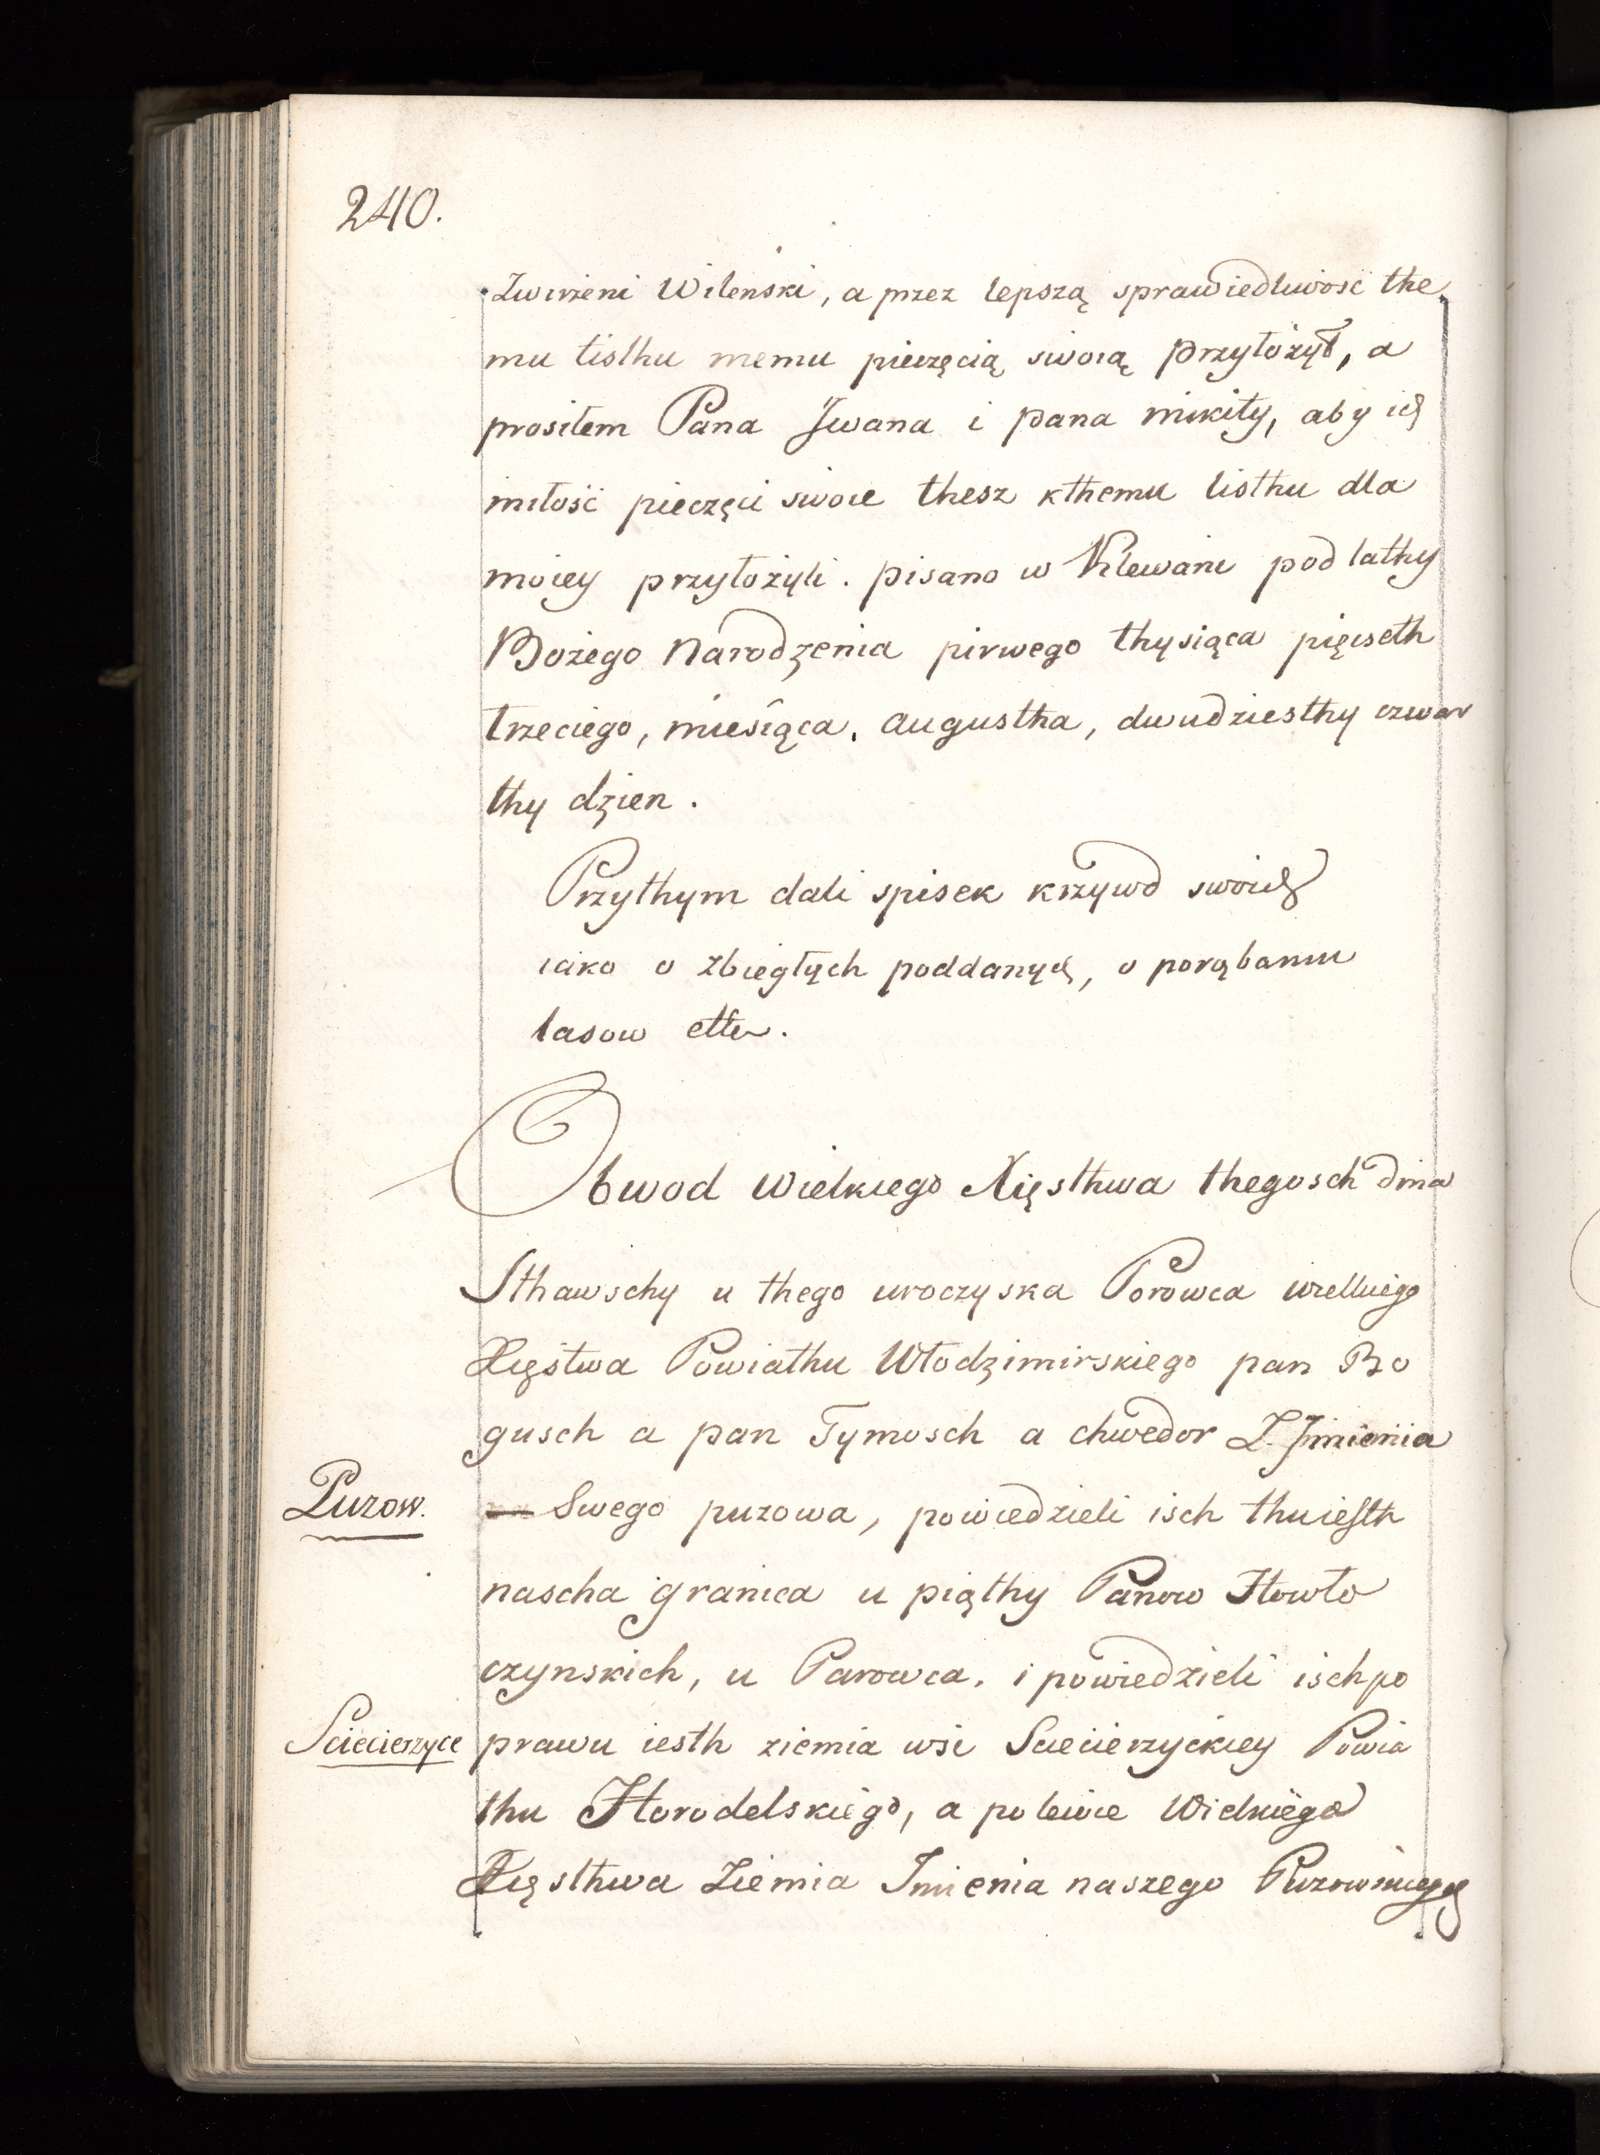 240.
Zwirzeni Wilenski, a przez lepszą sprawiedliwosć the
mu listhu memu pieczęcią swoią przyłożył, a
prosiłem Pana Jwana i pana mikity, aby ich
miłość pieczęci swoie thesz kthemu listhu dla
moiey przyłożyli. pisano w Klewaniu pod lathy
Bożego Narodzenia pirwego thysiąca pięcseth
trzeciego, miesiąca, augustha, dwudziesthy czwar
thy dzien.
Przythym dali spisek krzywd swoich
iako o zbiegłych poddanych, o porąbaniu
lasow etc.
Obwod Wielkiego Xięsthwa thegosch dnia
Sthawschy u thego uroczyska Porowca wielkiego
Xięstwa Powiathu Włodzimirskiego pan Bo
gusch a pan Tymosch a chwedor Z Jmienia
Puzow. Swego puzowa, powiedzieli isch thuiesth
nascha granica u piąthy Panow Howło
czynskich, u Parowca. i powiedzieli isch po
Sciecierzyce prawu iesth ziemia wsi Sciecierzyckiey Powia
thu Horodelskiego, a po lewie Wielkiego
Xięsthwa Ziemia Jmienia naszego